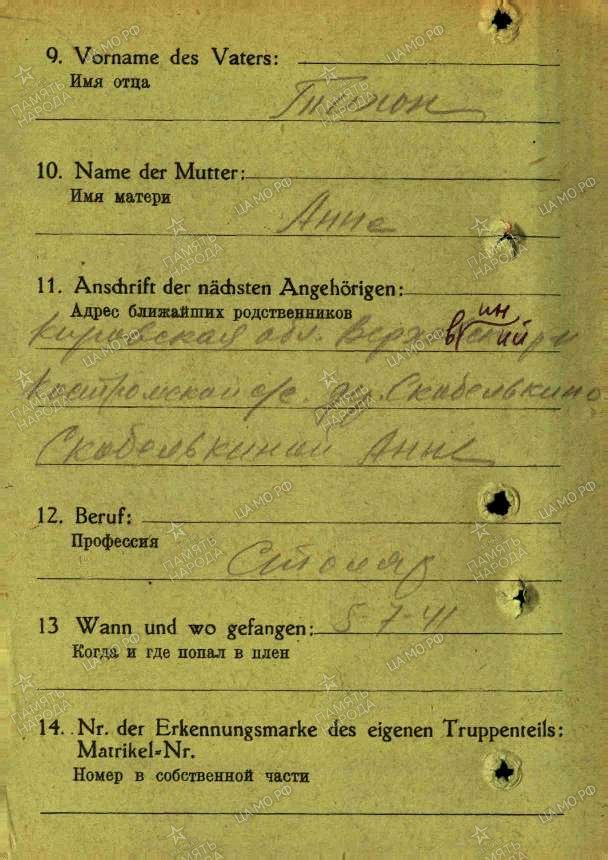 9. Vorname des Vaters:
Имя отца
Тихон
10. Name der Mutter:
Имя матери
Анне
11. Anschrift der nächsten Angehörigen:
Адрес ближайших родственников
Кировская обл.
Костромской с/с. д. Скобелькино
Скобелькиной Анне
12. Beruf:
Профессия
Столяр
13 Wann und wo gefangen: 5-7-41
Когда и где попал в плен
14. Nr. der Erkennungsmarke des eigenen Truppenteils:
Matrikel-Nr.
Номер в собственной части
ПАМЯТЬ НАРОДА
ЦАМО.РФ